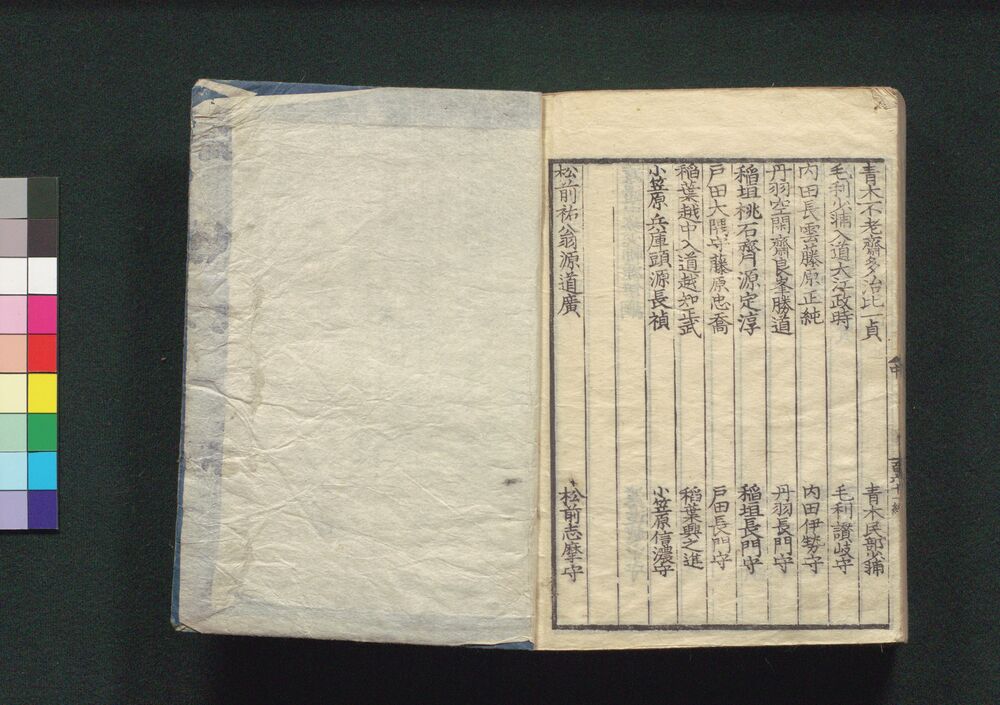 青木不老齋多治比一貞
青木民部少輔
毛利少輔入道大江政時
毛利讃岐守
内田長雲藤原正純
内田伊勢守
丹羽空閑齋良峯勝道
丹羽長門守
稲垣桃石齊源定淳
稲垣長門守
戸田大隅守藤原忠喬
戸田長門守
稲葉越中入道越知正武
稲葉興之進
小笠原兵庫頭源長禎
小笠原信濃守
松前祐翁源道廣
松前志摩守
中